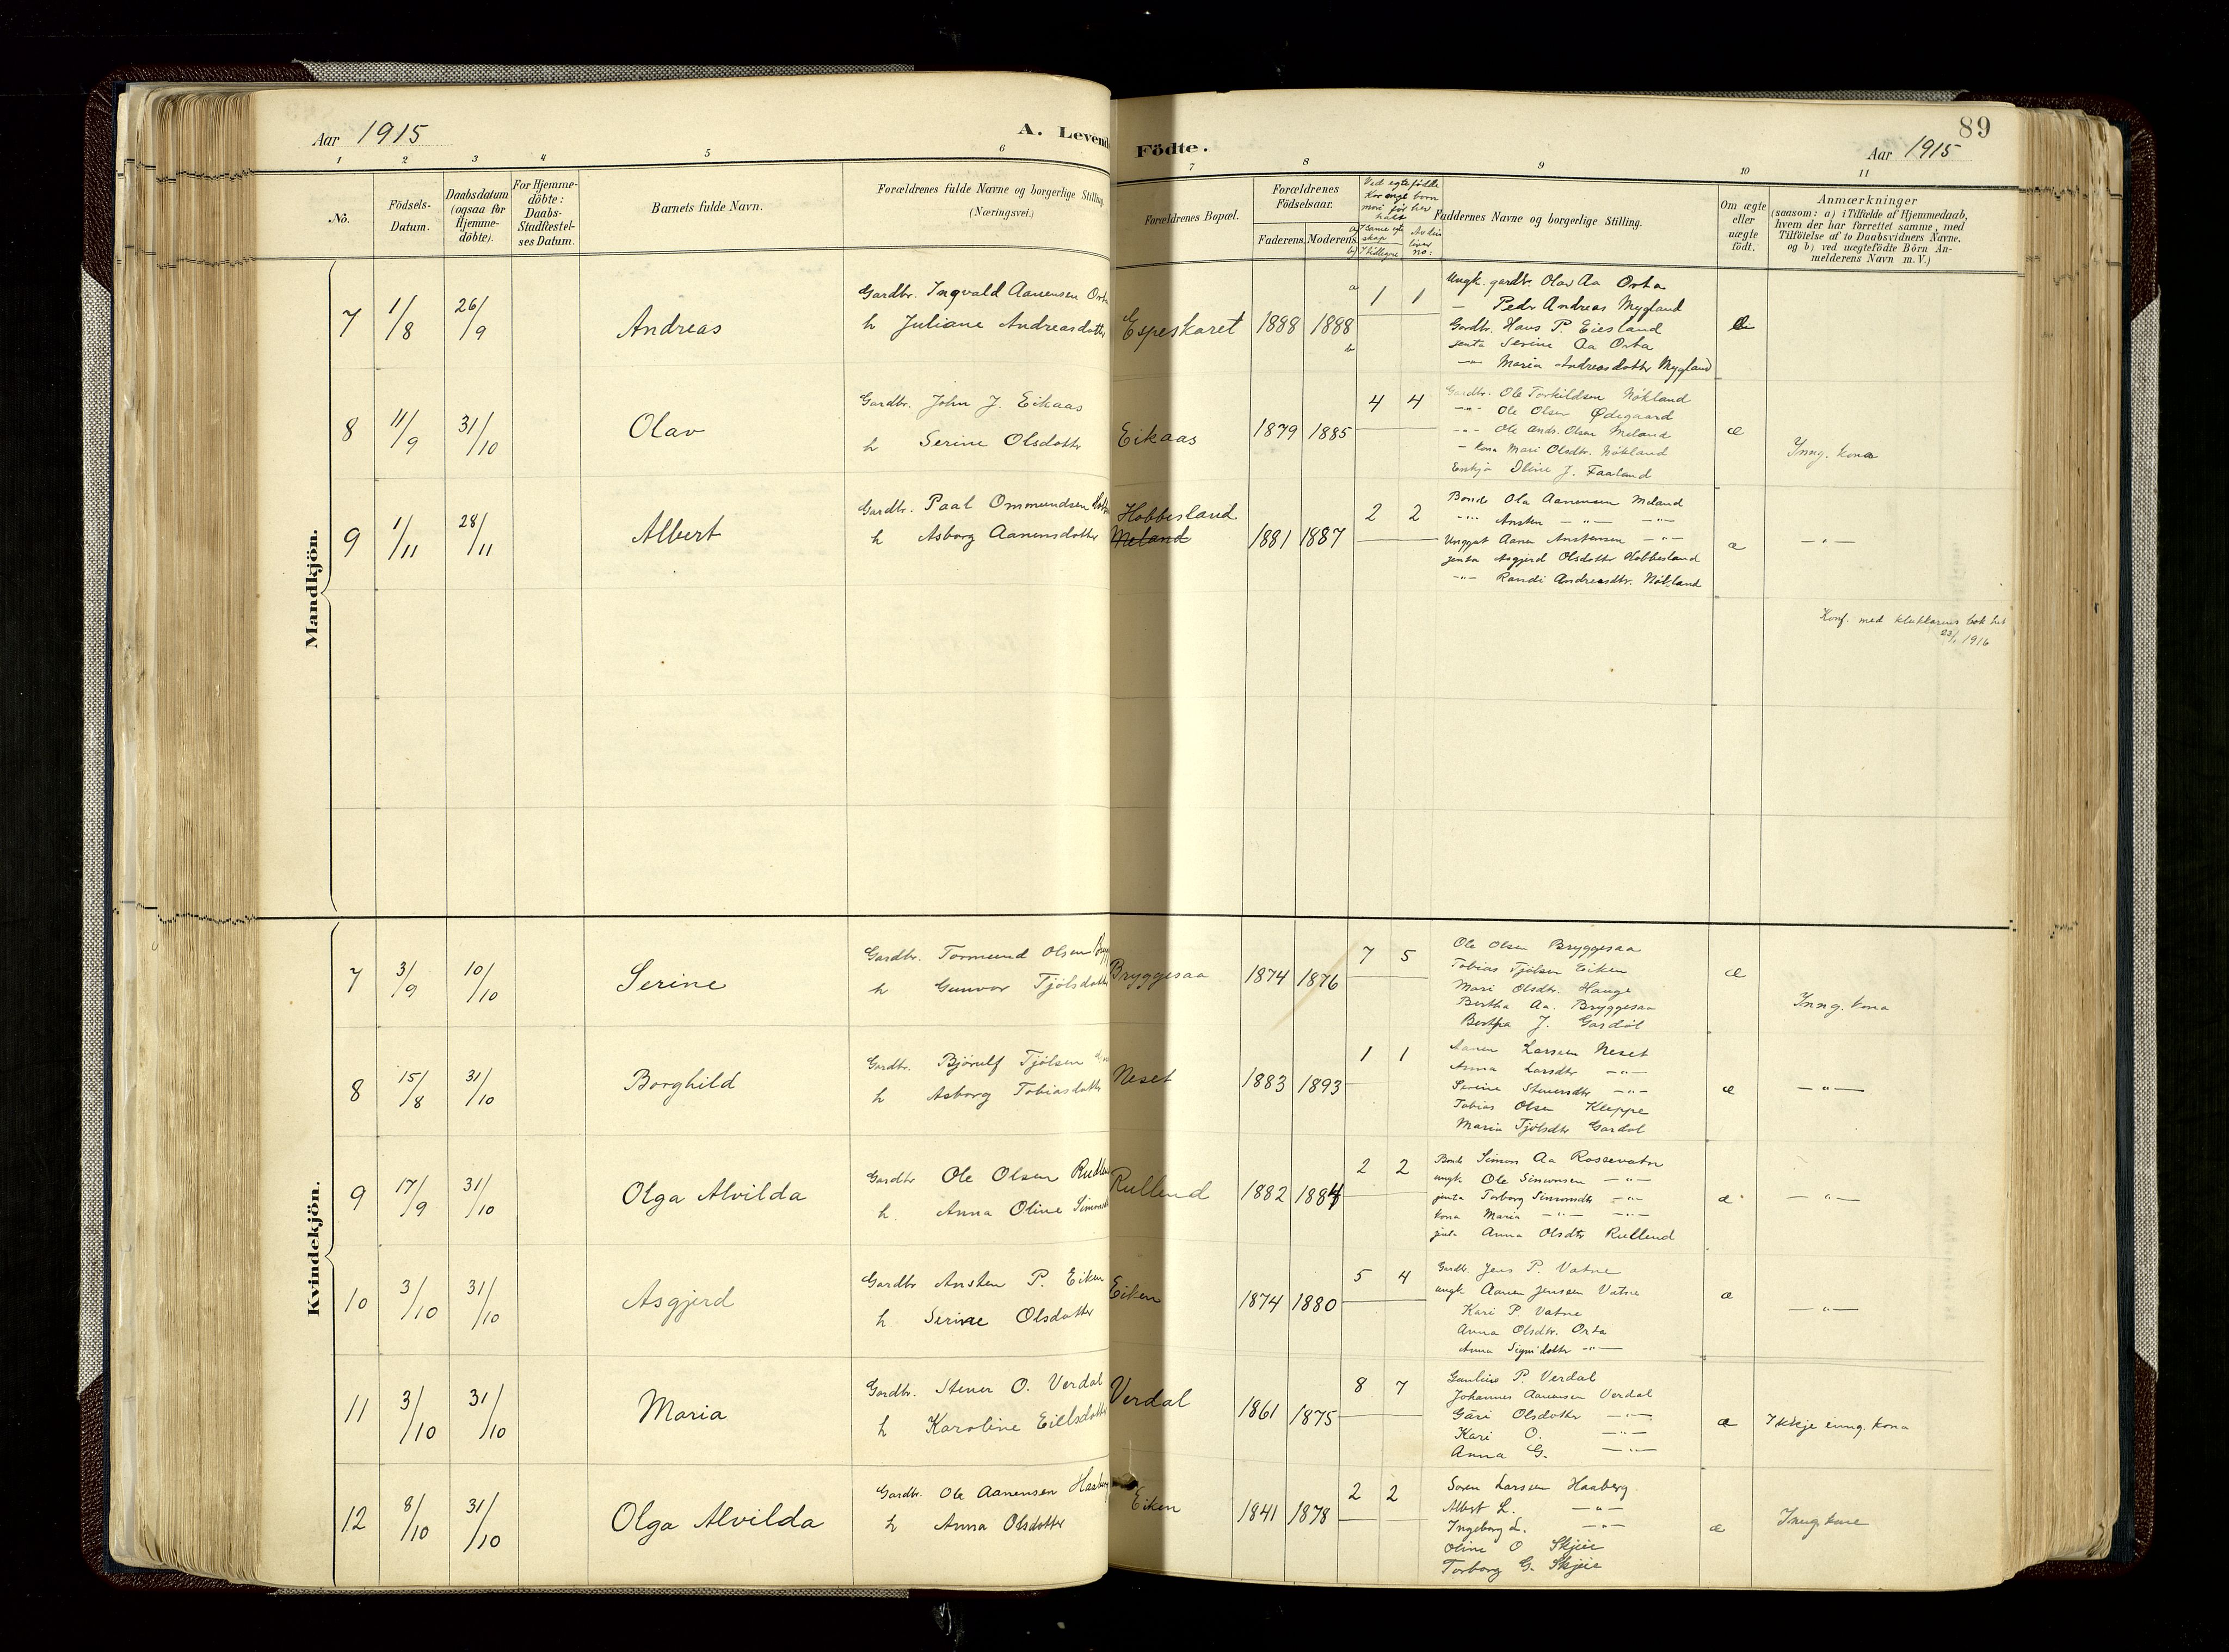 89
Aar 1915
A. Levend
Födte.
Aar 1915
1 2 3 4 5 6 7 8 9 10 11
No.
Födsels-
Datum.
Daabsdatum
(ogsaa for
Hjemme-
döbte).
For Hjemme-
döbte:
Daabs-
Stadfæstel-
ses Datum.
Barnets fulde Navn.
Forældrenes fulde Navne og borgerlige Stilling
(Næringsvei.)
Forældrenes Bopæl.
Forældrenes
Födselsaar.
Faderens. Moderens.
Ved egtefødde
Kor mange born
mori før her
havt
a) I same egte
skap
b) I tidlegare
Av liv
no:
Faddernes Navne og borgerlige Stilling.
Om ægte
eller
uægte
födt.
Anmærkninger
(saasom: a) i Tilfælde af Hjemmedaab,
hvem der har forrettet samme, med
Tilföielse af to Daabsvidners Navne,
og b) ved uægtefödte Börn An-
melderens Navn m. V.)
Mandkjön.
7 1/8 26/9 Andreas
Gardbr. Ingvald Aanensen Orta
h Juliane Andreasdotter
Espeskaret 1888 1888 a 1 1
b
Ungk. gardbr. Olav Aa Orta
— Peder Andreas Mygland
Gardbr. Hans P. Eiesland
jenta Serine Aa Orta
—"— Maria Andreasdotter Mygland
æ
8 11/9 31/10 Olav
Gardbr. John J. Eikaas
h Serine Olsdotter
Eikaas 1879 1885 4 4
Gardbr. Ole Torkildsen Nökland
—"— Ole Olsen Ødegaard
—"— Ole Ands. Olsen Meland
— kona Mari Olsdtr. Nökland
Enkja Oline J. Faaland
æ
Inng. kona
9 1/11 28/11 Albert
Gardbr. Paal Ommundsen Hobb
h Asborg Aanensdotter
Hobbesland
Meland
1881 1887 2 2
Bonde Ola Aanensen Meland
—"— Ansten —"— —"—
Unggut Aanen Anstensen —"—
jenta Asgjerd Olsdotter Hobbesland
—"— Randi Andreasdtr. Nökland
æ
—"—
Konf. med klukkarens bok hit
23/1 1916
Kvindekjön.
7 3/9 10/10 Serine
Gardbr. Tormund Olsen Bryg
h Gunvor Tjölsdotter
Bryggesaa 1874 1876 7 5
Ole Olsen Bryggesaa
Tobias Tjölsen Eiken
Mari Olsdtr. Hauge
Bertha Aa. Bryggesaa
Bertha J. Gardöl
æ
Inng. kona
8 15/8 31/10 Borghild
Gardbr. Bjönulf Tjölsen
h Asborg Tobiasdotter
Neset 1883 1893 1 1
Aanen Larssen Neset
Anna Larsdtr —"—
Serine Stenersdtr —"—
Tobias Olsen Kleppe
Maria Tjölsdtr Gardöl
æ
—"—
9 17/9 31/10 Olga Alvilda
Gardbr Ole Olsen Rullen
h. Anna Oline Simonsd
Rullend 1882 1884 2 2
Bonde Simon Aa Rossevatn
ungk. Ole Simonsen —"—
jenta Torborg Simonsdtr —"—
kona Maria —"— —"—
jenta Anna Olsdtr Rullend
æ
—"—
10 3/10 31/10 Asgjerd
Gardbr Ansten P. Eiken
h. Serine Olsdotter
Eiken 1874 1880 5 4
Gardb. Jens P. Vatne
ungk Aanen Jenssen Vatne
Kari P Vatne
Anna Olsdtr. Orta
Anna Sigridotter —"—
æ
—"—
11 3/10 31/10 Maria
Gardbr. Stener O. Verdal
h Karoline Eielsdotter
Verdal 1861 1875 8 7
Gunleiv P. Verdal
Johannes Aanensen Verdal
Gäri Olsdotter —"—
Kari O. —"—
Anna G. —"—
æ
Ikkje inng. kona
12 8/10 31/10 Olga Alvilda
Gardbr. Ole Aanensen Haaberg
h Anna Olsdotter
Eiken 1841 1878 2 2
Soren Larssen Haaberg
Albert L. —"—
Ingeborg L. —"—
Oline O Skjeie
Torborg G. Skjeie
æ
Inng. kone